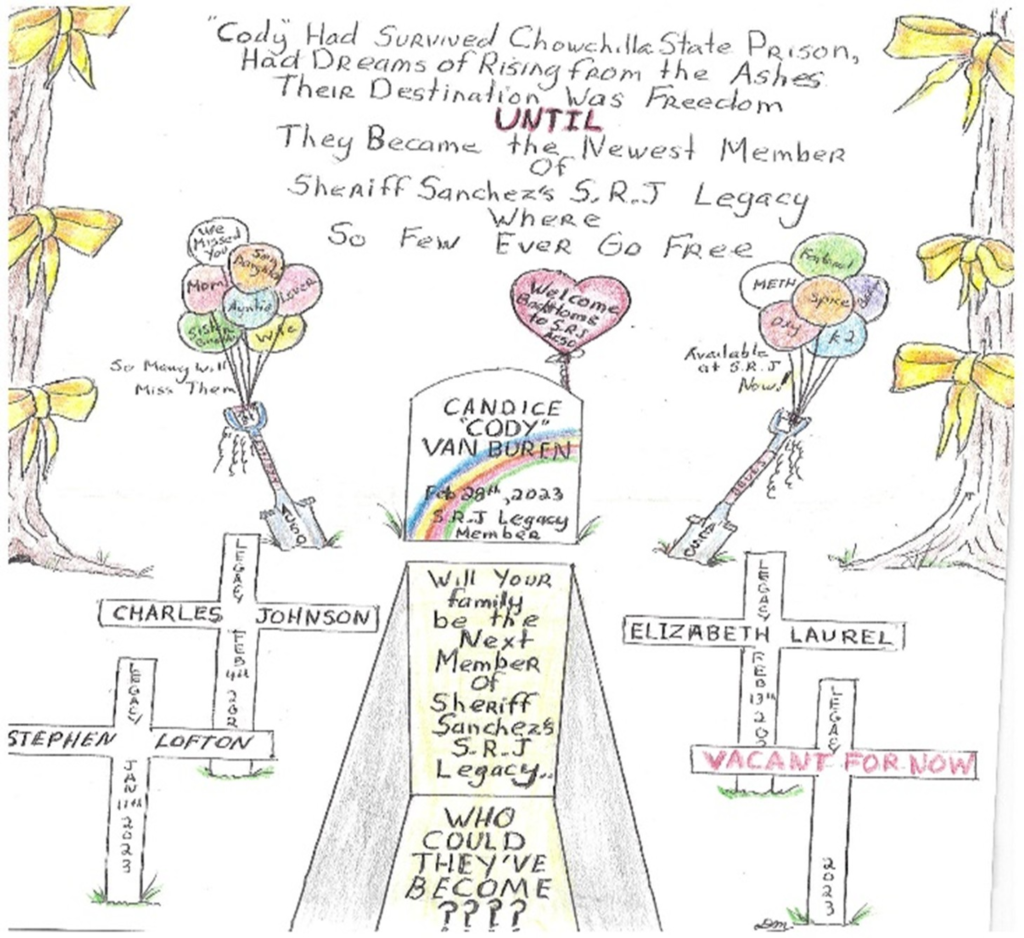 "Cody" Had Survived Chowchilla State Prison,
Had Dreams of Rising from the Ashes
Their Destination Was Freedom
UNTIL
They Became the Newest Member
Of
Sheriff Sanchez's S.R.J Legacy
Where
So Few Ever Go Free
We
Missed
You
Son
Daughter
Mom
Auntie
Lover
Sister
Wife
So Many Will
Miss Them
Welcome
Back Home
to S.R.J
ACSO
Fentanyl
METH
Spice
Oxy
K2
Available
at S.R.J
Now!
CANDICE
"CODY"
VAN BUREN
Feb 28th, 2023
S.R.J Legacy
Member
ACSO
DRUGS
ACSO
LEGACY
CHARLES JOHNSON
FEB
4th
202
LEGACY
STEPHEN LOFTON
JAN
11th
2023
LEGACY
ELIZABETH LAUREL
FEB
13th
202
LEGACY
VACANT FOR NOW
2023
Will Your
family
be the
Next
Member
Of
Sheriff
Sanchez's
S.R.J
Legacy..
WHO
COULD
THEY'VE
BECOME
????
DM